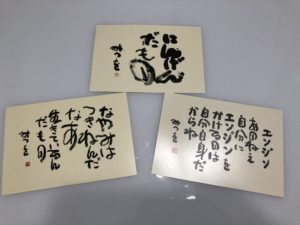 にんげん
だもの
みつを
なやみは
つきねんだ
なあ
生きているん
だもの
みつを
エンジン
あのねえ
自分に
エンジンを
かけるのは
自分自身だ
からね
みつを